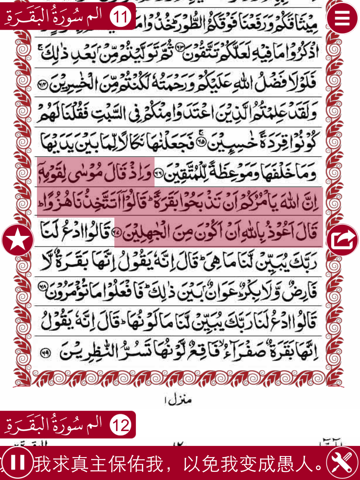 11 الم سُورَةُ الْبَقَـرَةِ
مِيْثَاقَكُمْ وَرَفَعْنَا فَوْقَكُمُ الطُّوْرَ ؕ خُذُوْا
اذْكُرُوْا مَا فِيْهِ لَعَلَّكُمْ تَتَّقُوْنَ ﴿۶۳﴾ ثُمَّ تَوَلَّيْتُمْ مِّنْۢ بَعْدِ ذٰلِكَ ۚ
فَلَوْلَا فَضْلُ اللّٰهِ عَلَيْكُمْ وَرَحْمَتُهٗ لَكُنْتُمْ مِّنَ الْخٰسِرِيْنَ ﴿۶۴﴾
وَلَقَدْ عَلِمْتُمُ الَّذِيْنَ اعْتَدَوْا مِنْكُمْ فِي السَّبْتِ فَقُلْنَا لَهُمْ
كُوْنُوْا قِرَدَةً خٰسِـِٕيْنَ ﴿۶۵﴾ فَجَعَلْنٰهَا نَكَالًا لِّمَا بَيْنَ يَدَيْهَا
وَمَا خَلْفَهَا وَمَوْعِظَةً لِّلْمُتَّقِيْنَ ﴿۶۶﴾ وَاِذْ قَالَ مُوْسٰى لِقَوْمِهٖۤ
اِنَّ اللّٰهَ يَاْمُرُكُمْ اَنْ تَذْبَحُوْا بَقَرَةً ؕ قَالُوْۤا اَتَتَّخِذُنَا هُزُوًا ؕ
قَالَ اَعُوْذُ بِاللّٰهِ اَنْ اَكُوْنَ مِنَ الْجٰهِلِيْنَ ﴿۶۷﴾ قَالُوا ادْعُ لَنَا
رَبَّكَ يُبَيِّنْ لَّنَا مَا هِيَ ؕ قَالَ اِنَّهٗ يَقُوْلُ اِنَّهَا بَقَرَةٌ لَّا
فَارِضٌ وَّلَا بِكْرٌ ؕ عَوَانٌۢ بَيْنَ ذٰلِكَ ؕ فَافْعَلُوْا مَا تُؤْمَرُوْنَ ﴿۶۸﴾
قَالُوا ادْعُ لَنَا رَبَّكَ يُبَيِّنْ لَّنَا مَا لَوْنُهَا ؕ قَالَ اِنَّهٗ يَقُوْلُ
اِنَّهَا بَقَرَةٌ صَفْرَآءُ ۙ فَاقِعٌ لَّوْنُهَا تَسُرُّ النّٰظِرِيْنَ ﴿۶۹﴾
منزل ۱
12 الم سُورَةُ الْبَقَـرَةِ
我求真主保佑我，以免我变成愚人。